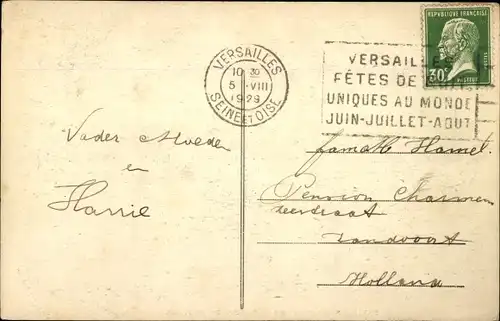 RÉPUBLIQUE FRANÇAISE
30c
POSTES
VERSAILLES
10 30
5 -VIII
1929
SEINE ET OISE
VERSAILLES
FÊTES DE NUIT
UNIQUES AU MONDE
JUIN-JUILLET-AOUT
Vader Moeder
en
Harrie
Hamel.
Pension Charmen
Zandvoort
Holland